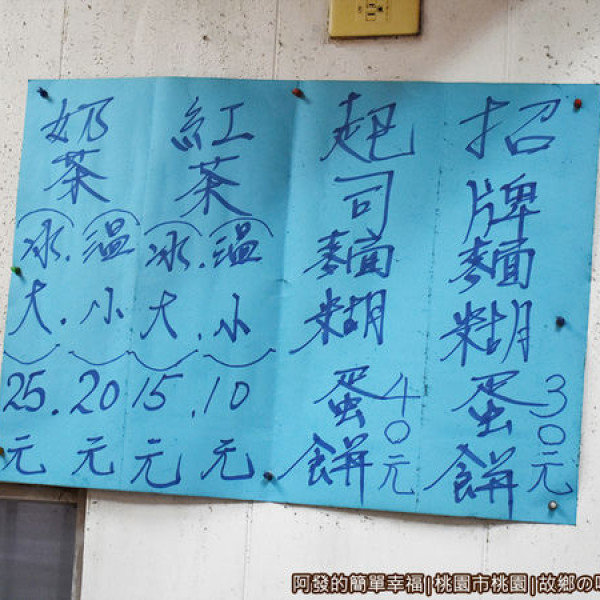 招牌麵糊蛋餅 30元
起司麵糊蛋餅 40元
紅茶
(溫.冰)
(小.大)
10元.15元
奶茶
(溫.冰)
(小.大)
20元.25元
阿發的簡單幸福|桃園市桃園|故鄉の